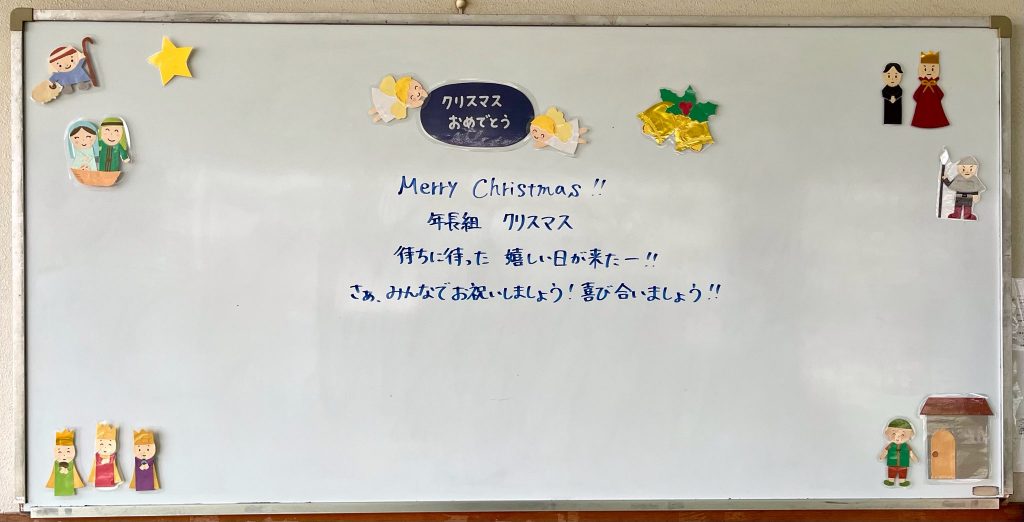 クリスマス
おめでとう
Merry Christmas!!
年長組 クリスマス
待ちに待った 嬉しい日が来たー!!
さぁ、みんなでお祝いしましょう!喜び合いましょう!!